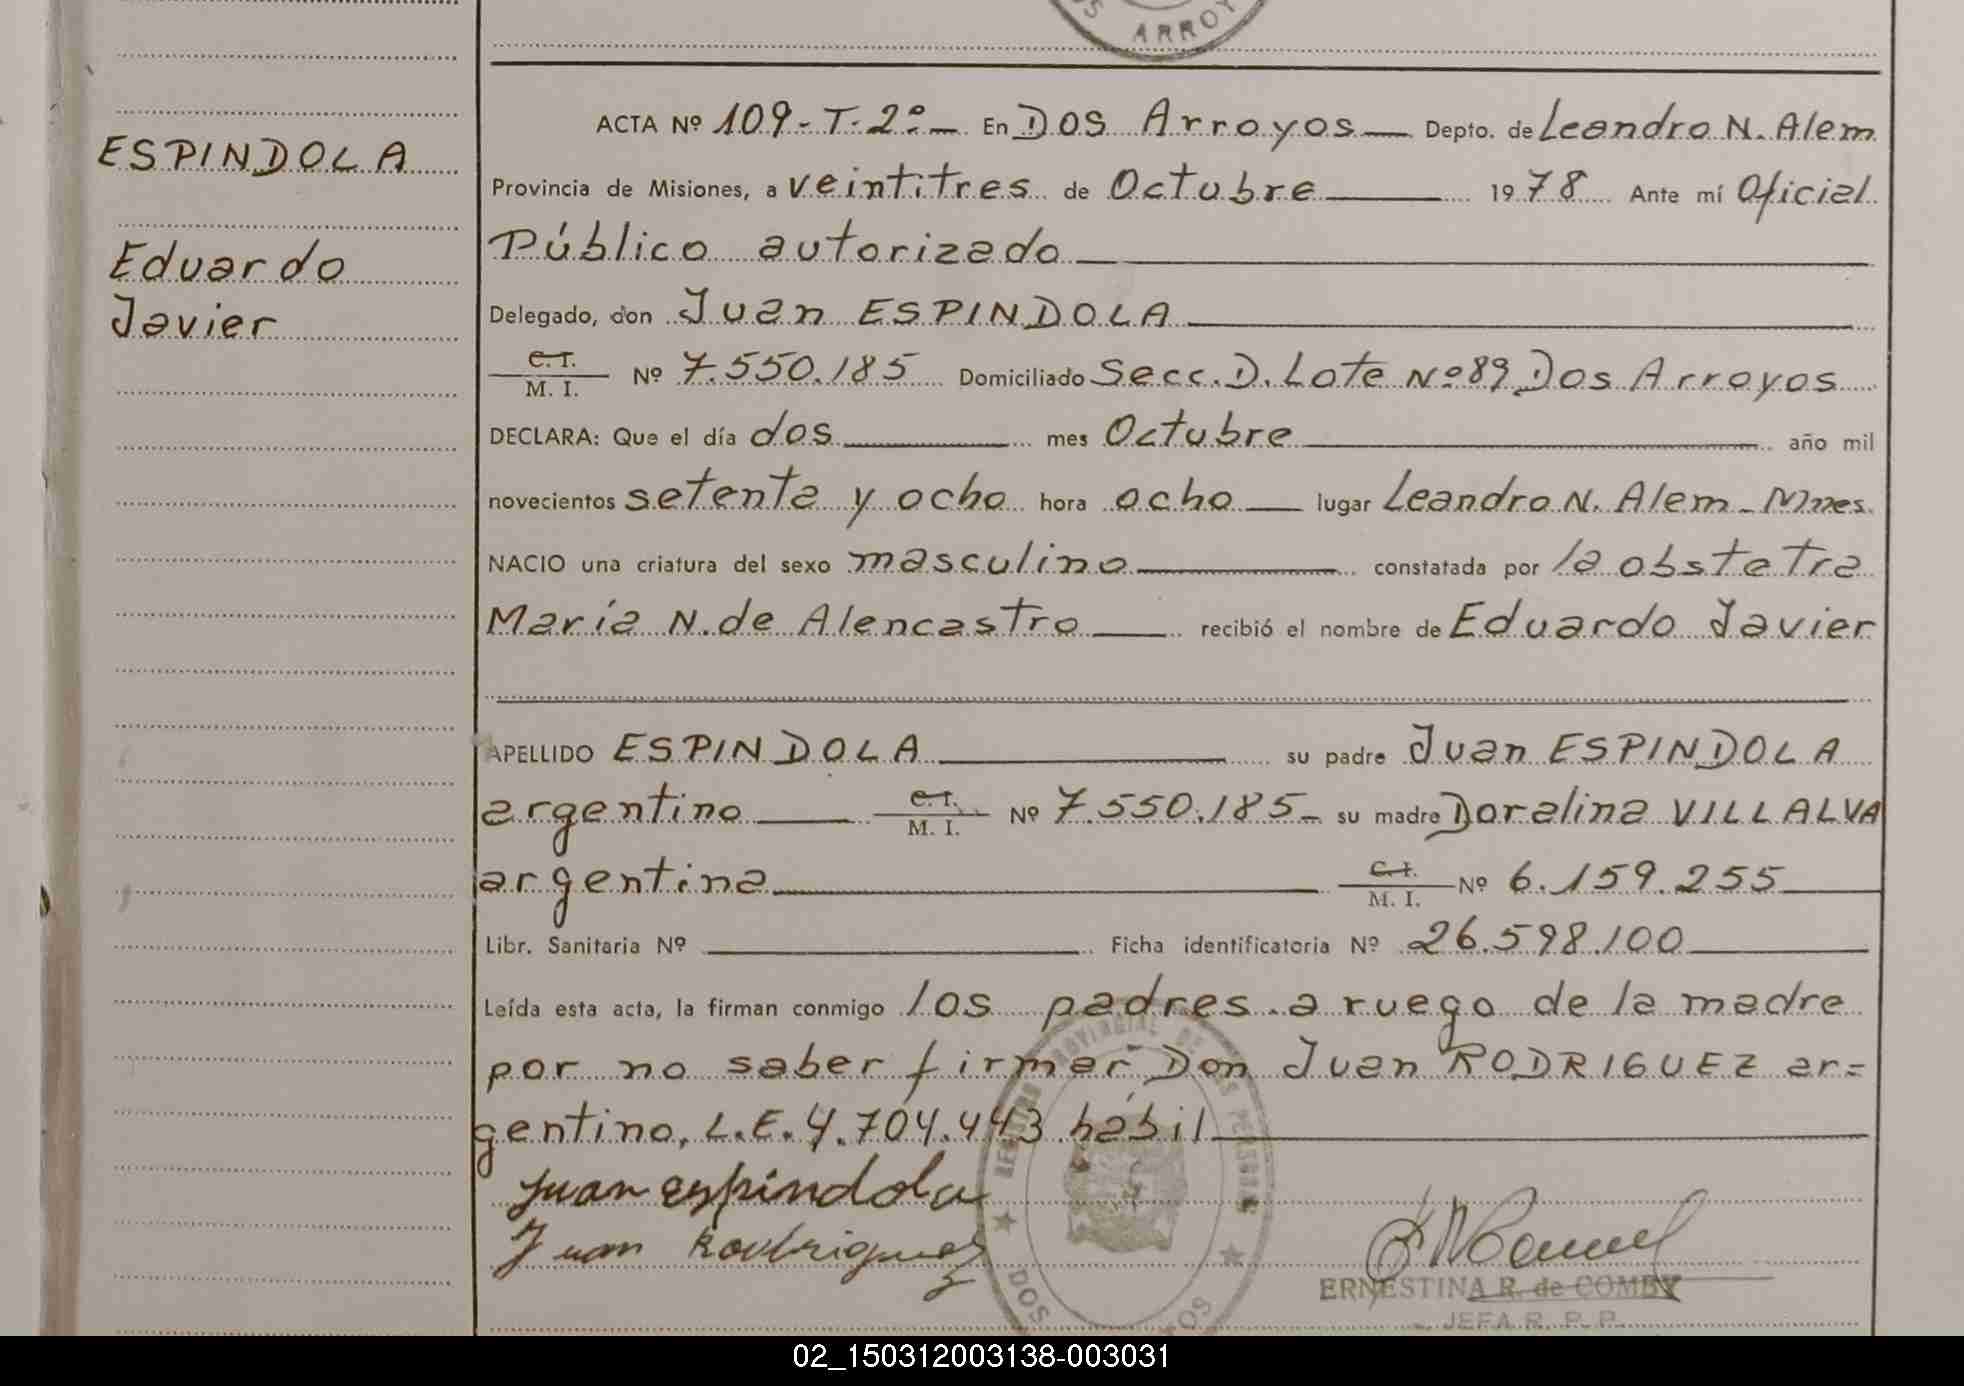 OS ARROYO
ESPINDOLA
Eduardo
Javier
ACTA Nº 109-T-2º- En Dos Arroyos Depto. de Leandro N. Alem
Provincia de Misiones, a veintitres de Octubre 1978 Ante mí Oficial
Público autorizado
Delegado, don Juan ESPINDOLA
C.I.
M. I. Nº 7.550.185 Domiciliado Secc. D. Lote Nº 89 Dos Arroyos
DECLARA: Que el día dos mes Octubre año mil
novecientos setenta y ocho hora ocho lugar Leandro N. Alem - Mnes.
NACIO una criatura del sexo masculino constatada por la obstetra
María N. de Alencastro recibió el nombre de Eduardo Javier
APELLIDO ESPINDOLA su padre Juan ESPINDOLA
argentino C.I. M. I. Nº 7.550.185- su madre Doralina VILLALVA
argentina C.I. M. I. Nº 6.159.255
Libr. Sanitaria Nº Ficha identificatoria Nº 26.598.100
Leída esta acta, la firman conmigo los padres. a ruego de la madre
por no saber firmar Don Juan RODRIGUEZ ar=
gentino, L.E. 4.704.443 hábil
Juan espindola
Juan Rodriguez
REGISTRO PROVINCIAL DE LAS PERSONAS
DOS
OS
ERNESTINA R. de COMBY
JEFA R. P. P.
02_150312003138-003031